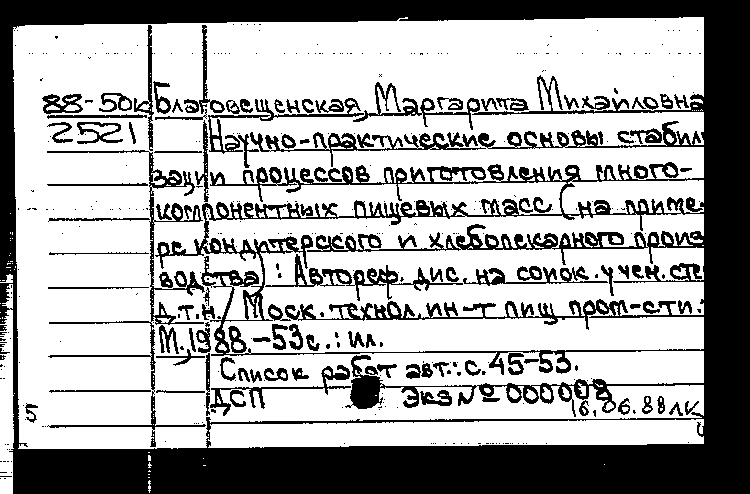 88-50к Благовещенская, Маргарита Михайловна
2521 Научно-практические основы стабили
зации процессов приготовления много-
компонентных пищевых масс (на приме
ре кондитерского и хлебопекарного произ
водства) : Автореф. дис. на соиск. учен. сте
д.т.н. / Моск. технол. ин-т пищ. пром-сти. :
М., 1988. - 53с. : ил.
Список работ авт.: с. 45-53.
ДСП Экз № 000008
16.06.88 ЛК